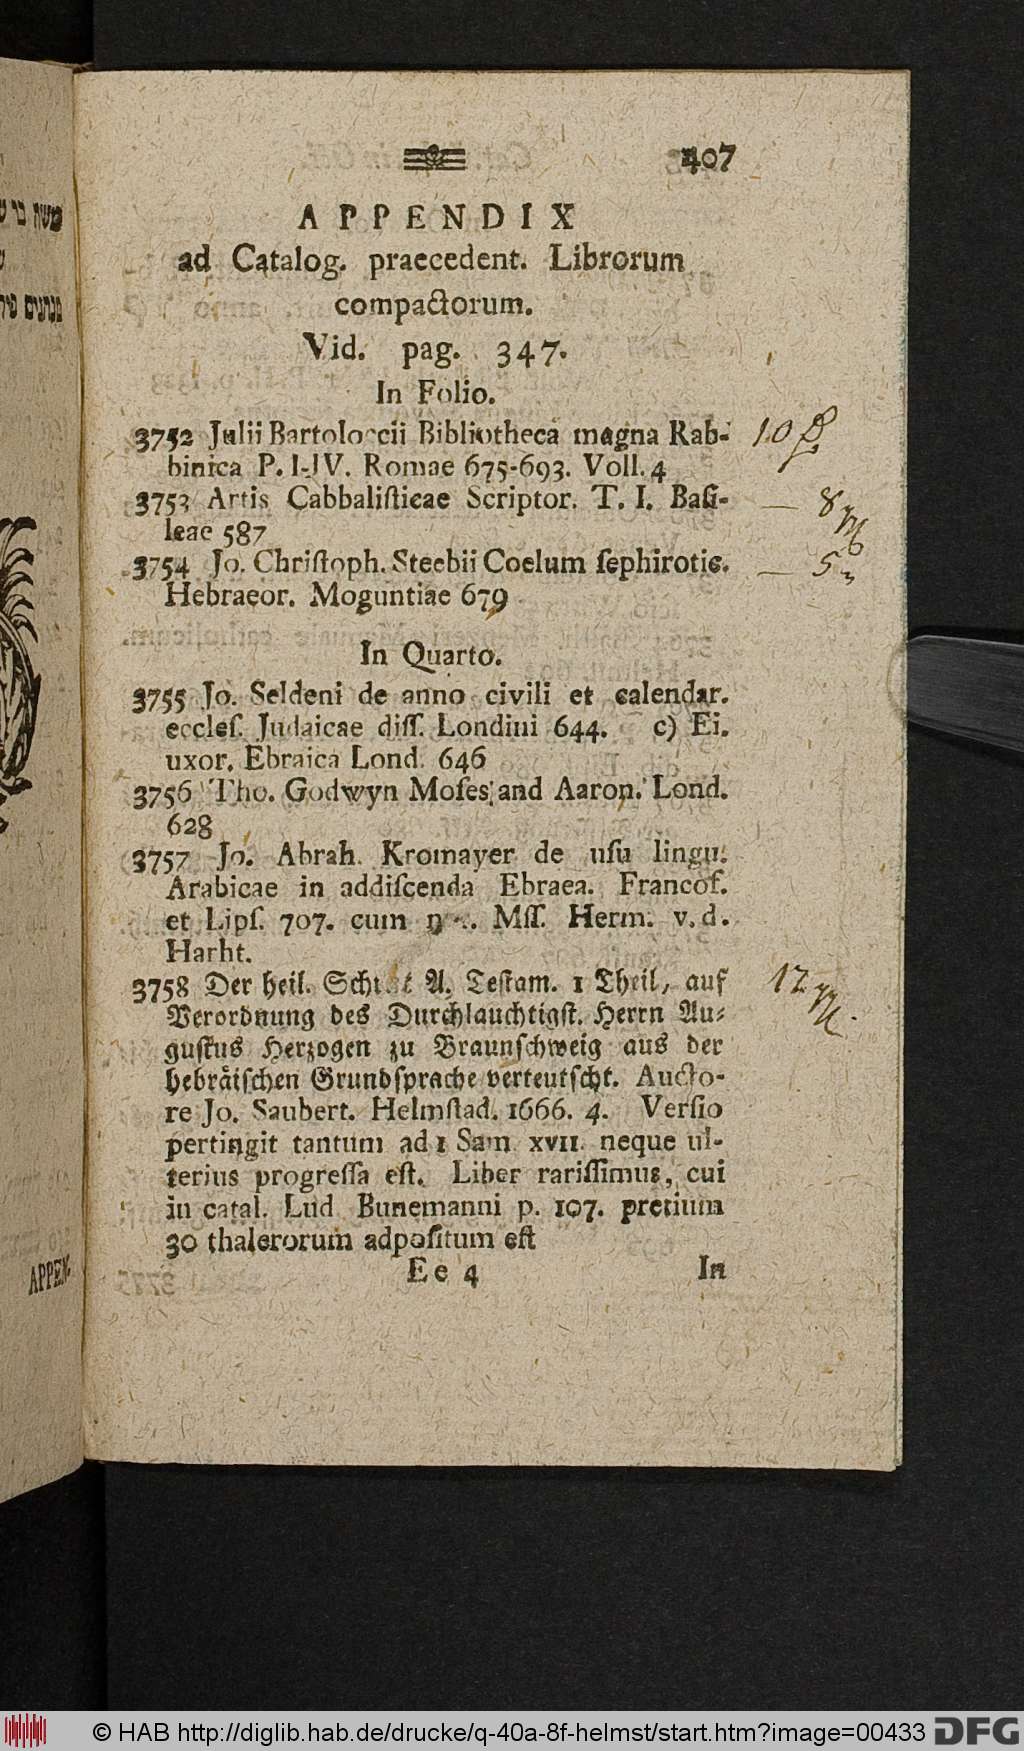 407
APPENDIX
ad Catalog. praecedent. Librorum
compactorum.
Vid. pag. 347.
In Folio.
3752 Julii Bartoloccii Bibliotheca magna Rab- 10
binica P. I-IV. Romae 675-693. Voll. 4
3753 Artis Cabbalisticae Scriptor. T. I. Basi- — 8
leae 587
3754 Jo. Christoph. Steebii Coelum sephirotic. — 5
Hebraeor. Moguntiae 679
In Quarto.
3755 Jo. Seldeni de anno civili et calendar.
eccles. Judaicae diss. Londini 644. c) Ei.
uxor. Ebraica Lond. 646
3756 Tho. Godwyn Moses and Aaron. Lond.
628
3757 Jo. Abrah. Kromayer de usu lingu.
Arabicae in addiscenda Ebraea. Francof.
et Lips. 707. cum Mss. Herm. v. d.
Harht.
3758 Der heil. A. Testam. 1 Theil, auf 12
Verordnung des Durchlauchtigst. Herrn Au-
gustus Herzogen zu Braunschweig aus der
hebräischen Grundsprache verteutscht. Aucto-
re Jo. Saubert. Helmstad. 1666. 4. Versio
pertingit tantum ad 1 Sam. XVII. neque ul-
terius progressa est. Liber rarissimus, cui
in catal. Lud. Bunemanni p. 107. pretium
30 thalerorum adpositum est
Ee 4 In
APPEN-
© HAB http://diglib.hab.de/drucke/q-40a-8f-helmst/start.htm?image=00433 DFG